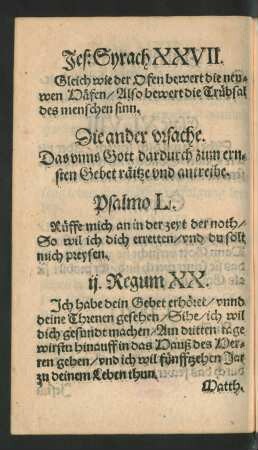 Jes: Syrach XXVII.
Gleich wie der Ofen bewert die neü-
wen Häfen/ Also bewert die Trübsal
des menschen sinn.
Die ander vrsache.
Das vnns Gott dardurch zum ern-
sten Gebet räitze vnd antreibe.
Psalmo L.
Rüffe mich an in der zeyt der noth/
So wil ich dich erretten/ vnd du solt
mich preysen.
ij. Regum XX.
Ich habe dein Gebet erhöret/ vnnd
deine Threnen gesehen/ Sihe/ ich wil
dich gesundt machen/ Am dritten tage
wirstu hinauff in das Hauß des Her-
ren gehen/ vnd ich wil fünffzehen Jar
zu deinem Leben thun.
Matth.